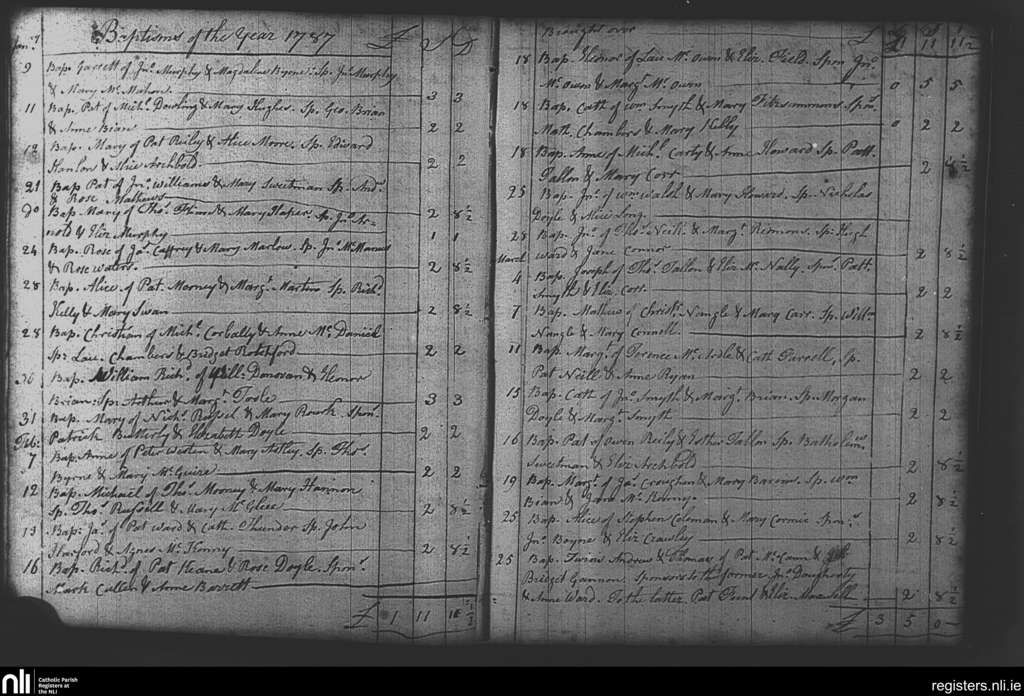 Baptisms of the Year 1787 £ S D
9 Bap. Garrett of Jno. Murphy & Magdalen Byrne. Sp. Jno. Murphy
& Mary Mc. Mahon 3 3
11 Bap. Pat of Mich. Dowling & Mary Hughes. Sp. Geo. Brian
& Anne Brian 2 2
12 Bap. Mary of Pat Reily & Alice Moore. Sp. Edward
Hanlon & Alice Archbold 2 2
21 Bap Pat of Jno. Williams & Mary Sweetman Sp. And.
& Rose Mathews 2 8½
Do Bap Mary of Thos. & Mary Sp. Jno. Ar-
nold & Eliz Murphy 1 1
24 Bap. Rose of Jas. Caffrey & Mary Marlow. Sp. Jno. Mc. Manus
& Rose Waters. 2 8½
28 Bap. Alice of Pat. Mooney & Margt. Martin Sp. Richd.
Kelly & Mary Swan 2 8½
28 Bap. Christian of Mich. Corbally & Anne Mc. Daniel
Sp. Lau. Chambers & Bridget Rotchford 2 2
Bap. William Rich. of Will: Donovan & Elenor
Brian: Sp. Arthur & Margt. Toole 3 3
31 Bap. Mary of Nich. & Mary Rourk Spon.
Feb: Patrick Butterly & Elizabeth Doyle 2 2
7 Bap Anne of Peter Weston & Mary Astley, Sp. Thos.
Byrne & Mary Mc. Guire 2 2
12 Bap. Michael of Thos. Mooney & Mary Hannon
Sp. Thos. Russell & Mary Mc. Glee 2 8½
13 Bap: Jas. of Pat Ward & Cath. Thunder Sp. John
Harford & Agnes Mc. Kenny 2 8½
16 Bap. Rich. of Pat Keane & Rose Doyle. Spon.
Mark Cullen & Anne Barrett
£ 1 11 11½
Brought over £ 1 11 11½
18 Bap. Elenor of Lau Mc. Owen & Eliz. Field. Spon Jno.
Mc. Owen & Margt. Mc. Owen 0 5 5
18 Bap. Cath of Wm. Smyth & Mary Fitzsimmons Spon.
Math. Chambers & Mary Kelly 0 2 2
18 Bap. Anne of Mich. Carty & Anne Howard Sp. Patt.
Fallon & Mary Carr 2 8½
25 Bap. Jno. of Wm. Walsh & Mary Sp. Nicholas
Doyle & Alice Long.
28 Bap. Jno. of Thos. Neill & Margt. Redmons. Sp. Hugh
March Ward & Jane Connor 2 8½
4 Bap. Joseph of Thos. Fallon & Eliz Mc. Nally, Spon. Patt.
Smyth & Eliz. Carr. 2 2
7 Bap. Mathew of Christ. Nangle & Mary Carr. Sp. Will.
Nangle & Mary Connell 2 8½
11 Bap. Margt. of Terence & Cath Purcell, Sp.
Pat Neill & Anne Ryan 2 2
15 Bap. Cath of Jno. Smyth & Margt. Brian. Sp. Morgan
Doyle & Margt. Smyth 2 2
16 Bap. Pat of Owen Reily & Esther Fallon Sp. Batholmw.
Sweetman & Eliz Archbold 2 8½
19 Bap. Margt. of Jas. Croughan & Mary Bacons. Sp. Wm
Brian & Jane Mc. 2 8½
25 Bap. Alice of Stephen Coleman & Mary Cormic Spon.
Jno. Boyne & Eliz Crawley 2 8½
25 Bap. Twins Andrew & Thomas of Pat. Mc. Cann &
Bridget Gannon. Sponsors to the former, Jno. Daugherty
& Anne Ward. To the latter, Pat & Eliz 2 8½
£ 3 5 0
nli Catholic Parish
Registers at
the NLI
registers.nli.ie